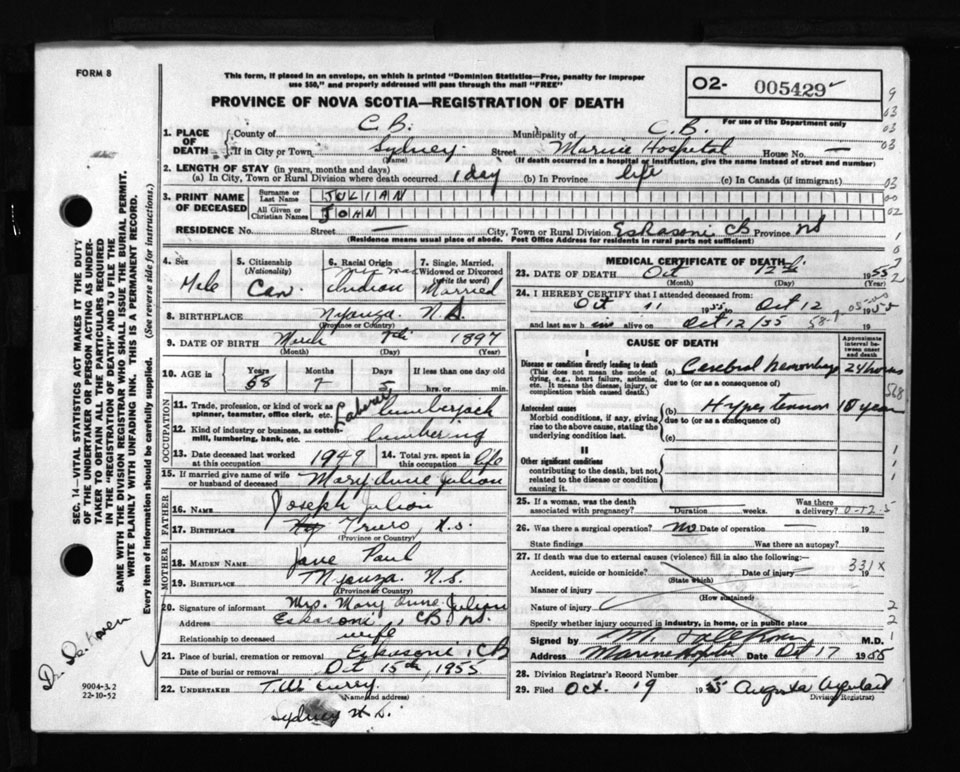 FORM 8
This form, if placed in an envelope, on which is printed "Dominion Statistics—Free, penalty for improper
use $50," and properly addressed will pass through the mail "FREE"
PROVINCE OF NOVA SCOTIA—REGISTRATION OF DEATH
02- 005429
For use of the Department only
1. PLACE OF DEATH
County of C.B. Municipality of C.B.
If in City or Town Sydney Street Marine Hospital House No. —
(Name) (If death occurred in a hospital or institution, give the name instead of street and number)
2. LENGTH OF STAY (in years, months and days)
(a) In City, Town or Rural Division where death occurred 1 day (b) In Province life (c) In Canada (if immigrant)
3. PRINT NAME OF DECEASED
Surname or Last Name JULIAN
All Given or Christian Names JOHN
RESIDENCE No. Street — City, Town or Rural Division Eskasoni CB Province NS
(Residence means usual place of abode. Post Office Address for residents in rural parts not sufficient)
4. Sex Male
5. Citizenship (Nationality) Can
6. Racial Origin Mic mac Indian
7. Single, Married, Widowed or Divorced (Write the word) Married
8. BIRTHPLACE Nyanza. N.S.
(Province or Country)
9. DATE OF BIRTH March 7th 1897
(Month) (Day) (Year)
10. AGE in Years 58 Months 7 Days 5 If less than one day old hrs. or min.
OCCUPATION
11. Trade, profession, or kind of work as spinner, teamster, office clerk, etc. Laborer lumberjack
12. Kind of industry or business, as cotton-mill, lumbering, bank, etc. lumbering
13. Date deceased last worked at this occupation 1949
14. Total yrs. spent in this occupation life
15. If married give name of wife or husband of deceased Mary Anne Julian
FATHER
16. Name Joseph Julian
17. Birthplace Truro, N.S.
(Province or Country)
MOTHER
18. MAIDEN NAME Jane Paul
19. BIRTHPLACE Nyanza. N.S.
(Province or Country)
20. Signature of informant Mrs. Mary Anne Julian
Address Eskasoni, CB NS.
Relationship to deceased wife
21. Place of burial, cremation or removal Eskasoni CB
Date of burial or removal Oct 15th, 1955
22. UNDERTAKER T.W. Curry
(Name and address)
Sydney N.S.
MEDICAL CERTIFICATE OF DEATH
23. DATE OF DEATH Oct 12th 1955
(Month) (Day) (Year)
24. I HEREBY CERTIFY that I attended deceased from:
Oct 11 1955 to Oct 12 1955
and last saw him alive on Oct 12/55 19
CAUSE OF DEATH
Approximate interval between onset and death
I
Disease or condition directly leading to death (a) Cerebral hemorrhage 24 hours
(This does not mean the mode of dying, e.g., heart failure, asthenia, etc. It means the disease, injury, or complication which caused death.)
due to (or as a consequence of)
Antecedent causes (b) Hypertension 10 year
Morbid conditions, if any, giving rise to the above cause, stating the underlying condition last.
due to (or as a consequence of)
(c)
II
Other significant conditions
contributing to the death, but not related to the disease or condition causing it.
25. If a woman, was the death associated with pregnancy? Duration weeks. Was there a delivery?
26. Was there a surgical operation? No Date of operation —
State findings Was there an autopsy?
27. If death was due to external causes (violence) fill in also the following:—
Accident, suicide or homicide? Date of injury 19
(State which)
331X
Manner of injury
(How sustained)
Nature of injury
Specify whether injury occurred in industry, in home, or in public place
Signed by M.D.
Address Marine Hospital Date Oct 17 1955
28. Division Registrar's Record Number
29. Filed Oct. 19 1955 Augusta
(Division Registrar)
SEC. 14—VITAL STATISTICS ACT MAKES IT THE DUTY
OF THE UNDERTAKER OR PERSON ACTING AS UNDER-
TAKER TO OBTAIN ALL THE PARTICULARS REQUIRED
IN THE "REGISTRATION OF DEATH" AND TO FILE THE
SAME WITH THE DIVISION REGISTRAR WHO SHALL ISSUE THE BURIAL PERMIT.
WRITE PLAINLY WITH UNFADING INK. THIS IS A PERMANENT RECORD.
Every item of information should be carefully supplied. (See reverse side for instructions.)
9004-3.2
22-10-52